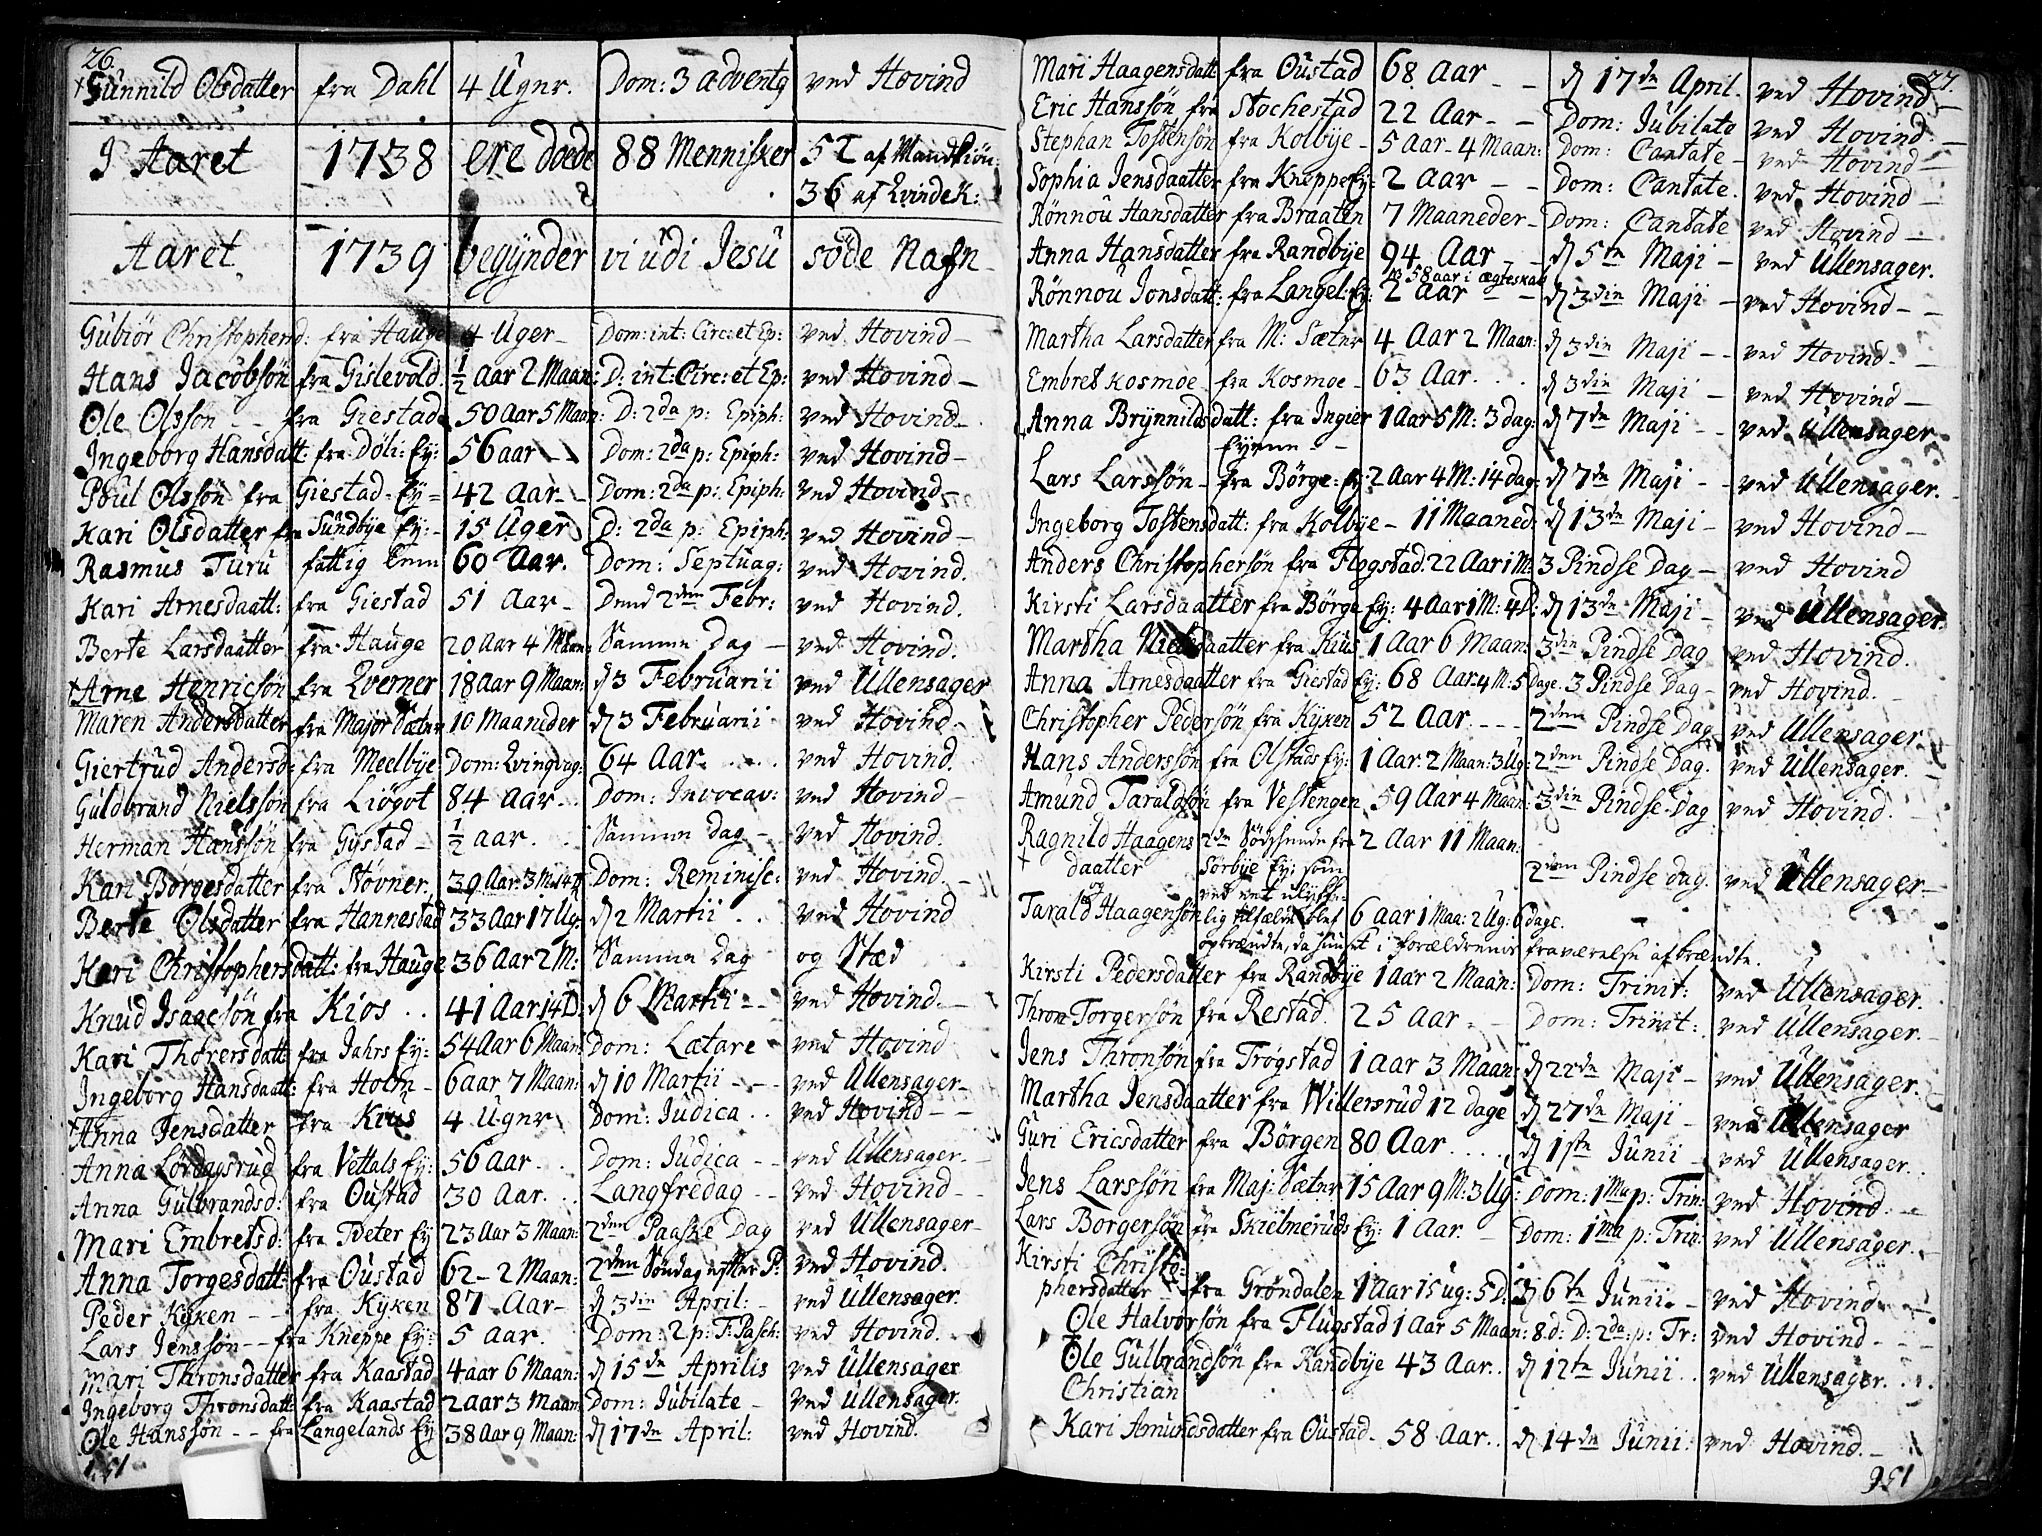 26.
+ Gunnild Olsdatter fra Dahl 4 Ugnr. Dom: 3 adventg ved Hovind
I Aaret 1738 ere døede 88 Mennisker 52 af Mandkiön:
36 af Qvindek:
Aaret 1739 begÿnder vi udi Jesu söde Nafn
Gubiör Christophersd: fra Hauge 4 Uger Dom: int: Circ: et Ep: ved Hovind
Hans Jacobsön fra Gislevold ½ Aar 2 Maan: D: int: Circ: et Ep: ved Hovind
Ole Olsson fra Giestad 50 Aar 5 Maan: D: 2da p: Epiph: ved Hovind
Ingeborg Hansdatt: fra Döli: Ey: 56 aar Dom: 2da p: Epiph: ved Hovind
Poul Olssön fra Giestad Ey 42 Aar Dom: 2da p: Epiph: ved Hovind
Kari Olsdatter fra Sundbye Ey: 15 Uger D: 2da p: Epiph: ved Hovind
Rasmus Turu fattig 60 Aar. Dom: Septuag: ved Hovind.
Kari Arnesdaatt: fra Giestad 51 Aar Dend 2den Febr: ved Hovind.
Berte Larsdaatter fra Hauge 20 Aar 4 Maan: Samme Dag ved Hovind.
+ Arne Henricsön fra Qverner 18 aar 9 Maan: d 3 Februarii ved Ullensager
Maren Andersdatter fra Major Sæter 10 Maaneder d 3 Februarii ved Hovind
Giertrud Andersd: fra Meelbÿe Dom: Qvinqvag: 64 Aar. ved Hovind.
Guldbrand Nielssön fra Liögot 84 Aar Dom: Invocav: ved Hovind
Herman Hanssön fra Gÿstad ½ aar. Samme dag ved Hovind.
Kari Borgesdatter fra Stövner. 39 Aar 3 M: 14 D: Dom: Reminisc: ved Hovind.
Berte Olsdatter fra Hannestad 33 Aar 17 Ug: d 2 Martii ved Hovind
Kari Christophersdatt: fra Hauge 36 Aar 2 M: Samme Dag og Stæd
Knud Isaacsön fra Kios 41 Aar 14 D: d 6 Martii ved Hovind.
Kari Thorersdatt: fra Jahrs Ey: 54 Aar 6 Maan: Dom: Lætare ved Hovind
Ingeborg Hansdaatt: fra Holm 6 aar 7 Maan: d 10 Martii ved Ullensager
+ Anna Jensdatter fra Kius 4 Ugnr Dom: Judica ved Hovind
Anna Lördagsrud fra Vettals Ey: 56 aar Dom: Judica ved Ullensager.
Anna Gulbrandsd: fra Oustad 30 Aar Langfredag ved Hovind
Mari Embretsd: fra Teter Ey 23 Aar 3 Maan: 2den Paaske Dag ved Ullensager
Anna Torgesdatt: fra Oustad 62 2 Maan: 2den Söndag efter P: ved Hovind.
Peder Kÿxen fra Kÿxen 87 Aar d 3din April: ved Ullensager.
Lars Jenssön fra Kneppe Ey: 5 aar. Dom: 2 p: F: Pasch: ved Hovind.
Mari Thronsdatter fra Kaastad 4 aar 6 Maan: d 15de Aprilis ved Ullensager
Ingeborg Thronsdatt: fra Kaastad 2 aar 3 Maan: Dom: Jubilate ved Ullensager.
Ole Hanssön fra Langelands Ey 38 Aar 9 Maan: d 17de April: ved Hovind.
27.
Mari Haagensdatt fra Oustad 68 Aar d 17de April. ved Hovind
Eric Hanssön fra Stochestad 22 Aar Dom: Jubilate ved Hovind
Stephan Tostensön fra Kolbÿe 5 aar 4 Maan: Dom: Cantate ved Hovind
Sophia Jensdaatter fra Kneppe Ey: 2 aar Dom: Cantate. ved Hovind
Rönnou Hansdatter fra Braaten 7 Maaneder Dom: Cantate ved Hovind
Anna Hansdatter fra Randbÿe 94 Aar d 5te Maji ved Ullensager.
58 aar i ægteskab
Rönnou Jonsdatt: fra Langel: Ey: 2 aar d 3din Maji ved Hovind
Martha Larsdatter fra M: Sæter 4 Aar 2 Maan: d 3din Maji ved Hovind
Embret Kosmoe fra Kosmoe 63 Aar d 3din Maji ved Hovind
Anna Brÿnnildsdatt: fra Ingier 1 Aar 5 M: 3 dag: d 7de Maji ved Ullensager
Lars Larssön fra Börge: Ey: 2 Aar 4 M: 14 dag: d 7de Maji ved Ullensager.
Ingeborg Tostensdatt: fra Kolbÿe 11 Maaned: d 13de Maji ved Hovind
Anders Christophersön fra Flogstad 22 Aar 1 M: 3 Pindse Dag ved Hovind
Kirsti Larsdaatter fra Börge Ey: 4 Aar 1 M: 4 D: d 13de Maji ved Ullensager.
Martha Nielsdaatter fra Kius 1 Aar 6 Maan: 3din Pindse Dag ved Hovind.
Anna Arnesdaatter fra Giestad Ey: 68 Aar 4 M: 5 Dage. 3 Pindse Dag ved Hovind.
Christopher Pedersön fra Kÿxen 52 Aar. 2den Pindse Dag ved Ullensager
Hans Anderssön fra Olstads Ey: 1 Aar. 2 Maan: 3 Ug: 2den Pindse Dag. ved Ullensager.
Amund Taraldsön fra Vestengen 59 Aar 4 Maan: 3din Pindse Dag ved Hovind.
Ragnild Haagens 2de Södschende fra 2 Aar 11 Maan:
+ daatter Sörbÿe Ey: som 2den Pindse dag. ved Ullensager
og ved et ulÿkke
Tarald Haagensön lig tilfælde blef 6 aar 1 Maa: 2 Ug: 6 dage.
opbrændte, da huuset i forældrenis fraværelse afbrændte.
Kirsti Pedersdatter fra Randbÿe 1 aar 2 Maan: Dom: Trinit: ved Ullensager.
Thron Torgersön fra Restad. 25 aar Dom: Trinit: ved Ullensager.
Jens Thronsön fra Trögstad 1 aar 3 Maan: d 22de Maji ved Ullensager.
Martha Jensdaatter fra Willersrud 12 dage d 27de Maji ved Ullensager
Guri Ericsdatter fra Börgen 80 Aar d 1ste Junii ved Ullensager.
Jens Larssön fra Maj: Sæter 15 Aar 9 M: 3 Ug: Dom: 1ma p: Trin: ved Hovind.
Lars Borgersön fra Skielmeruds Ey: 1 Aar. Dom: 1ma p: Trin: ved Ullensager.
Kirsti Christo-
phersdatter fra Gröndalen 1 Aar 15 ug: 5 D: d 6te Junii. ved Hovind
Ole Halvorsön fra Flugstad 1 Aar 5 Maan: 8 d: D: 2da p: Tr: ved Hovind
Ole Gulbrandsön fra Randbÿe 43 Aar d 12te Junii ved Ullensager.
Christian
Kari Amundsdatter fra Oustad 58 Aar d 14de Junii ved Hovind.